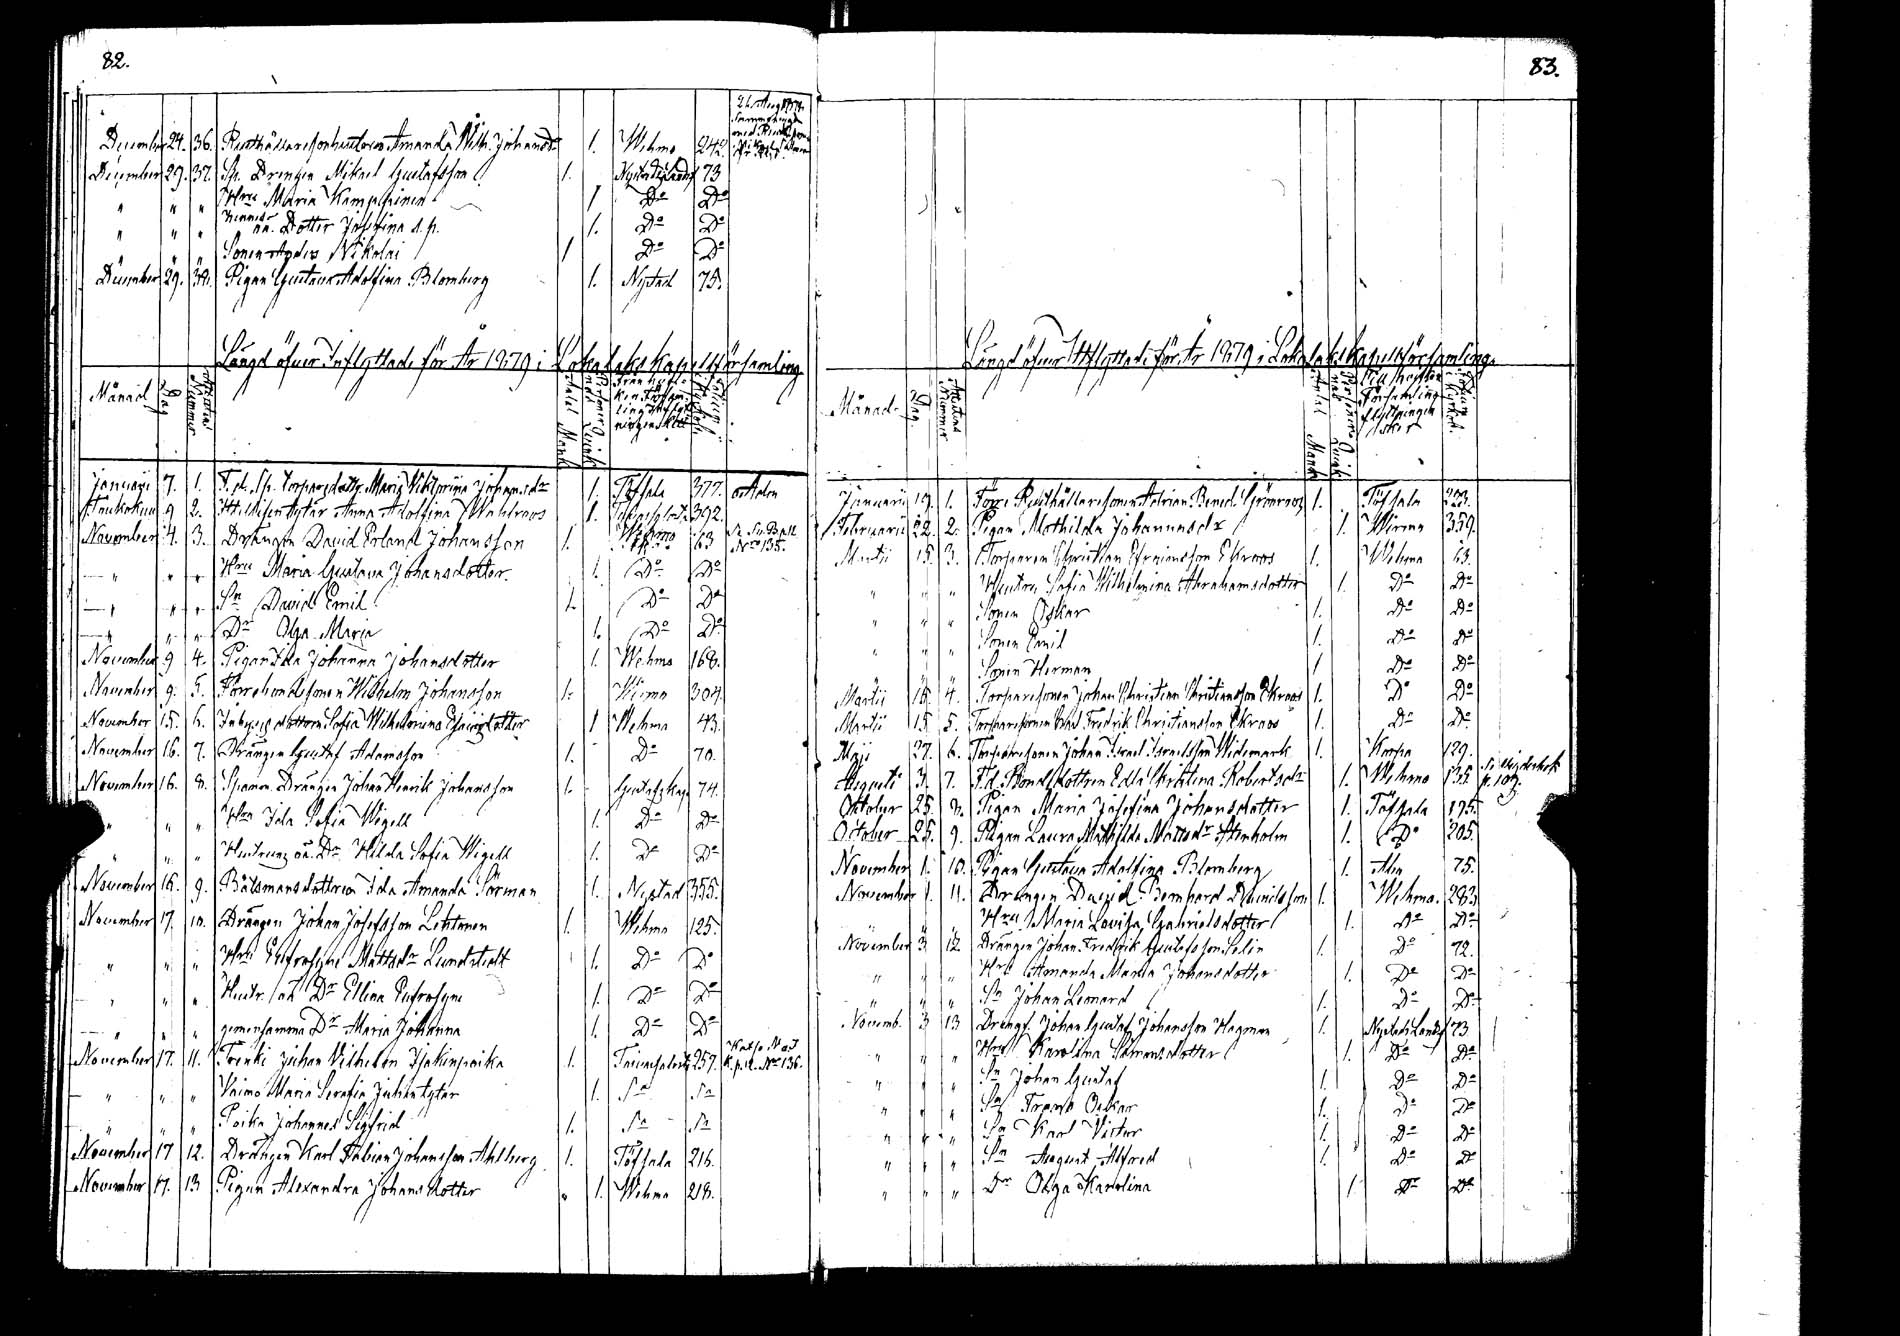 82.
December 24. 36. Rusthållaresonhustrun Amanda Wilh. Johansdr 1. Wehmo 242
December 29. 37. Sp. Drengen Mikael Gustafsson 1. 73
" " " Hru Maria 1 Do Do
" " " Dotter Josefina s. p. 1. Do Do
" " " Sonen Anders Nikolai 1 Do Do
December 29. 38. Pigan Gustava Adolfina Blomberg 1. Nystad 75.
Längd öfver Inflyttade för År 1879 i Lokalaks kapellförsamling
Månad Dag Attestens Nummer Antal Personer Mank. Qvink.
Januarii 7. 1. F. d. Sp. Torparedottr. Maria Viktorina Johansdr 1. Töfsala 377.
Toukokuu 9 2. Itellisen tytär Anna Adolfina Wahlroos 1. 392.
November 4. 3. Drängen David Erland Johansson 1. Wehmo 63 No 135.
" " " Hru Maria Gustava Johansdotter. 1. Do Do
" " " Sn David Emil 1. Do Do
" " " Dr Olga Maria 1. Do Do
November 9 4. Pigan Ida Johanna Johansdotter 1. Wehmo 168.
November 9. 5. Wilhelm Johansson 1. Wirmo 304.
November 15. 6. Sofia Wilhelmina 1 Wehmo 43.
November 16. 7. Drängen Gustaf Adamsson 1. Do 70.
November 16. 8. Drängen Johan Henrik Johansson 1. Gustafs kap. 74.
" " " Hru Ida Sofia Wigell 1. Do Do
" " " Hustruns oä. Dr Hilda Sofia Wigell 1. Do Do
November 16. 9. Båtsmansdottren Ida Amanda Sörman 1. Nystad 355.
November 17. 10. Drängen Johan Josefsson Lehtonen 1. Wehmo 125.
" " " Hru Eufrosyne Mattsdr Lundstedt 1. Do Do
" " " Hustr. oä Dr Ellina Eufrosyne 1. Do Do
" " " gemensamma Dr Maria Johanna 1. Do Do
November 17. 11. Trenki Juhan Vilhelm Isakinpoika 1. 257. No 136.
" " " Vaimo Maria Serafia Juhantytär 1. Sa Sa
" " " Poika Johannes Sigfrid 1. Sa Sa
November 17 12. Drängen Karl Fabian Johansson Ahlberg 1. Töfsala 216.
November 17. 13 Pigan Alexandra Johansdotter 1. Wehmo 218.
83.
Längd öfver Utflyttade för År 1879 i Lokalaks kapellförsamling.
Månad. Dag. Attestens Nummer Antal Personer Mank. Qvink. Till hvilken Församling flyttningen sker
Januarii 19. 1. Förre Rusthållaresonen Adrian Bened. Grönroos 1. Töfsala 223.
Februarii 22. 2. Pigan Mathilda Johannesdr 1. Wirmo 359.
Martii 15 3. Torparen Christian Efraimsson Ekroos 1. Wehmo 63.
" " " Hustru Sofia Wilhelmina Abrahamsdotter 1. Do Do
" " " Sonen Oskar 1. Do Do
" " " Sonen Emil 1. Do Do
" " " Sonen Herman 1 Do Do
Martii 15. 4. Torparesonen Johan Christian Christiansson Ekroos 1. Do Do
Martii 15 5. Torparesonen Fredrik Christiansson Ekroos 1. Do Do
Maji 27. 6. Torparesonen Johan Israel Israelsson Widemark 1. Korpo 129.
Augusti 3. 7. F.d. Bondedottren Edla Christina Robertsdr 1. Wehmo 135.
Oktober 25. 8. Pigan Maria Josefina Johansdotter 1. Töfsala 175.
October 25. 9. Pigan Laura Mathilda Mattsdr Stenholm 1. Do 205.
November 1. 10. Pigan Gustava Adolfina Blomberg 1. Åbo 75.
November 1. 11. Drengen David Bernhard Davidsson 1. Wehmo. 283
" " Hru Maria Lovisa Gabrielsdotter 1. Do Do
November 3 12 Drängen Johan Fredrik Gustafsson Selin 1. Do 72.
" " " Hru Amanda Maria Johansdotter 1. Do Do
" " " Sn Johan Leonard 1. Do Do
Novemb. 3 13 Dreng. Johan Gustaf Johansson Hagman 1. Nystads Landsf. 73
" " " Hru Karolina Simonsdotter 1. Do Do
" " " Sn Johan Gustaf 1. Do Do
" " " Sn Frans Oskar 1. Do Do
" " " Sn Karl Victor 1. Do Do
" " " Sn August Alfred 1. Do Do
" " " Dr Olga Karolina 1. Do Do